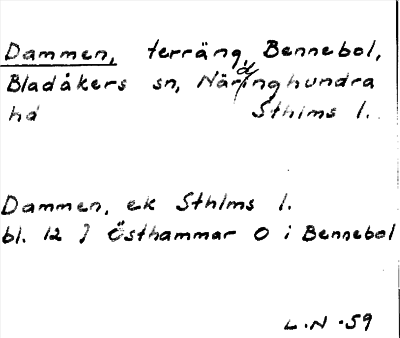 Dammen, terräng, Bennebol,
Bladåkers sn, Närdinghundra
hd Sthlms l.
Dammen, ek Sthlms l.
bl. 12 J Östhammar O i Bennebol
L.N -59